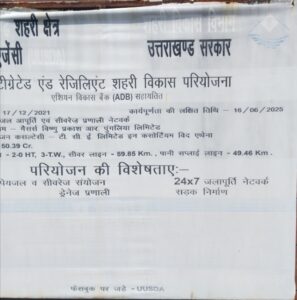 शहरी क्षेत्र
जेंसी उत्तराखण्ड सरकार
टीग्रेटेड एंड रेजिलिएंट शहरी विकास परियोजना
एशियन विकास बैंक (ADB) सहायतित
17/12/2021 कार्यपूर्णता की लक्षित तिथि – 16/06/2025
जल आपूर्ति एंव सीवरेज प्रणाली नेटवर्क
मैसर्स विष्णु प्रकाश आर पुंगलिया लिमिटेड
कन्सल्टेंसी - टी. सी. ई. लिमिटेड इन कंसोर्टियम विद
50.39 Cr.
- 2-0 HT, 3-T.W., सीवर लाईन – 59.65 Km., पानी सप्लाई लाईन – 49.46 Km.
परियोजन की विशेषताए:-
पेयजल व सीवरेज संयोजन 24x7 जलापूर्ति नेटवर्क
ड्रेनेज प्रणाली सड़क निर्माण
फेसबुक पर जुड़े - UUSDA